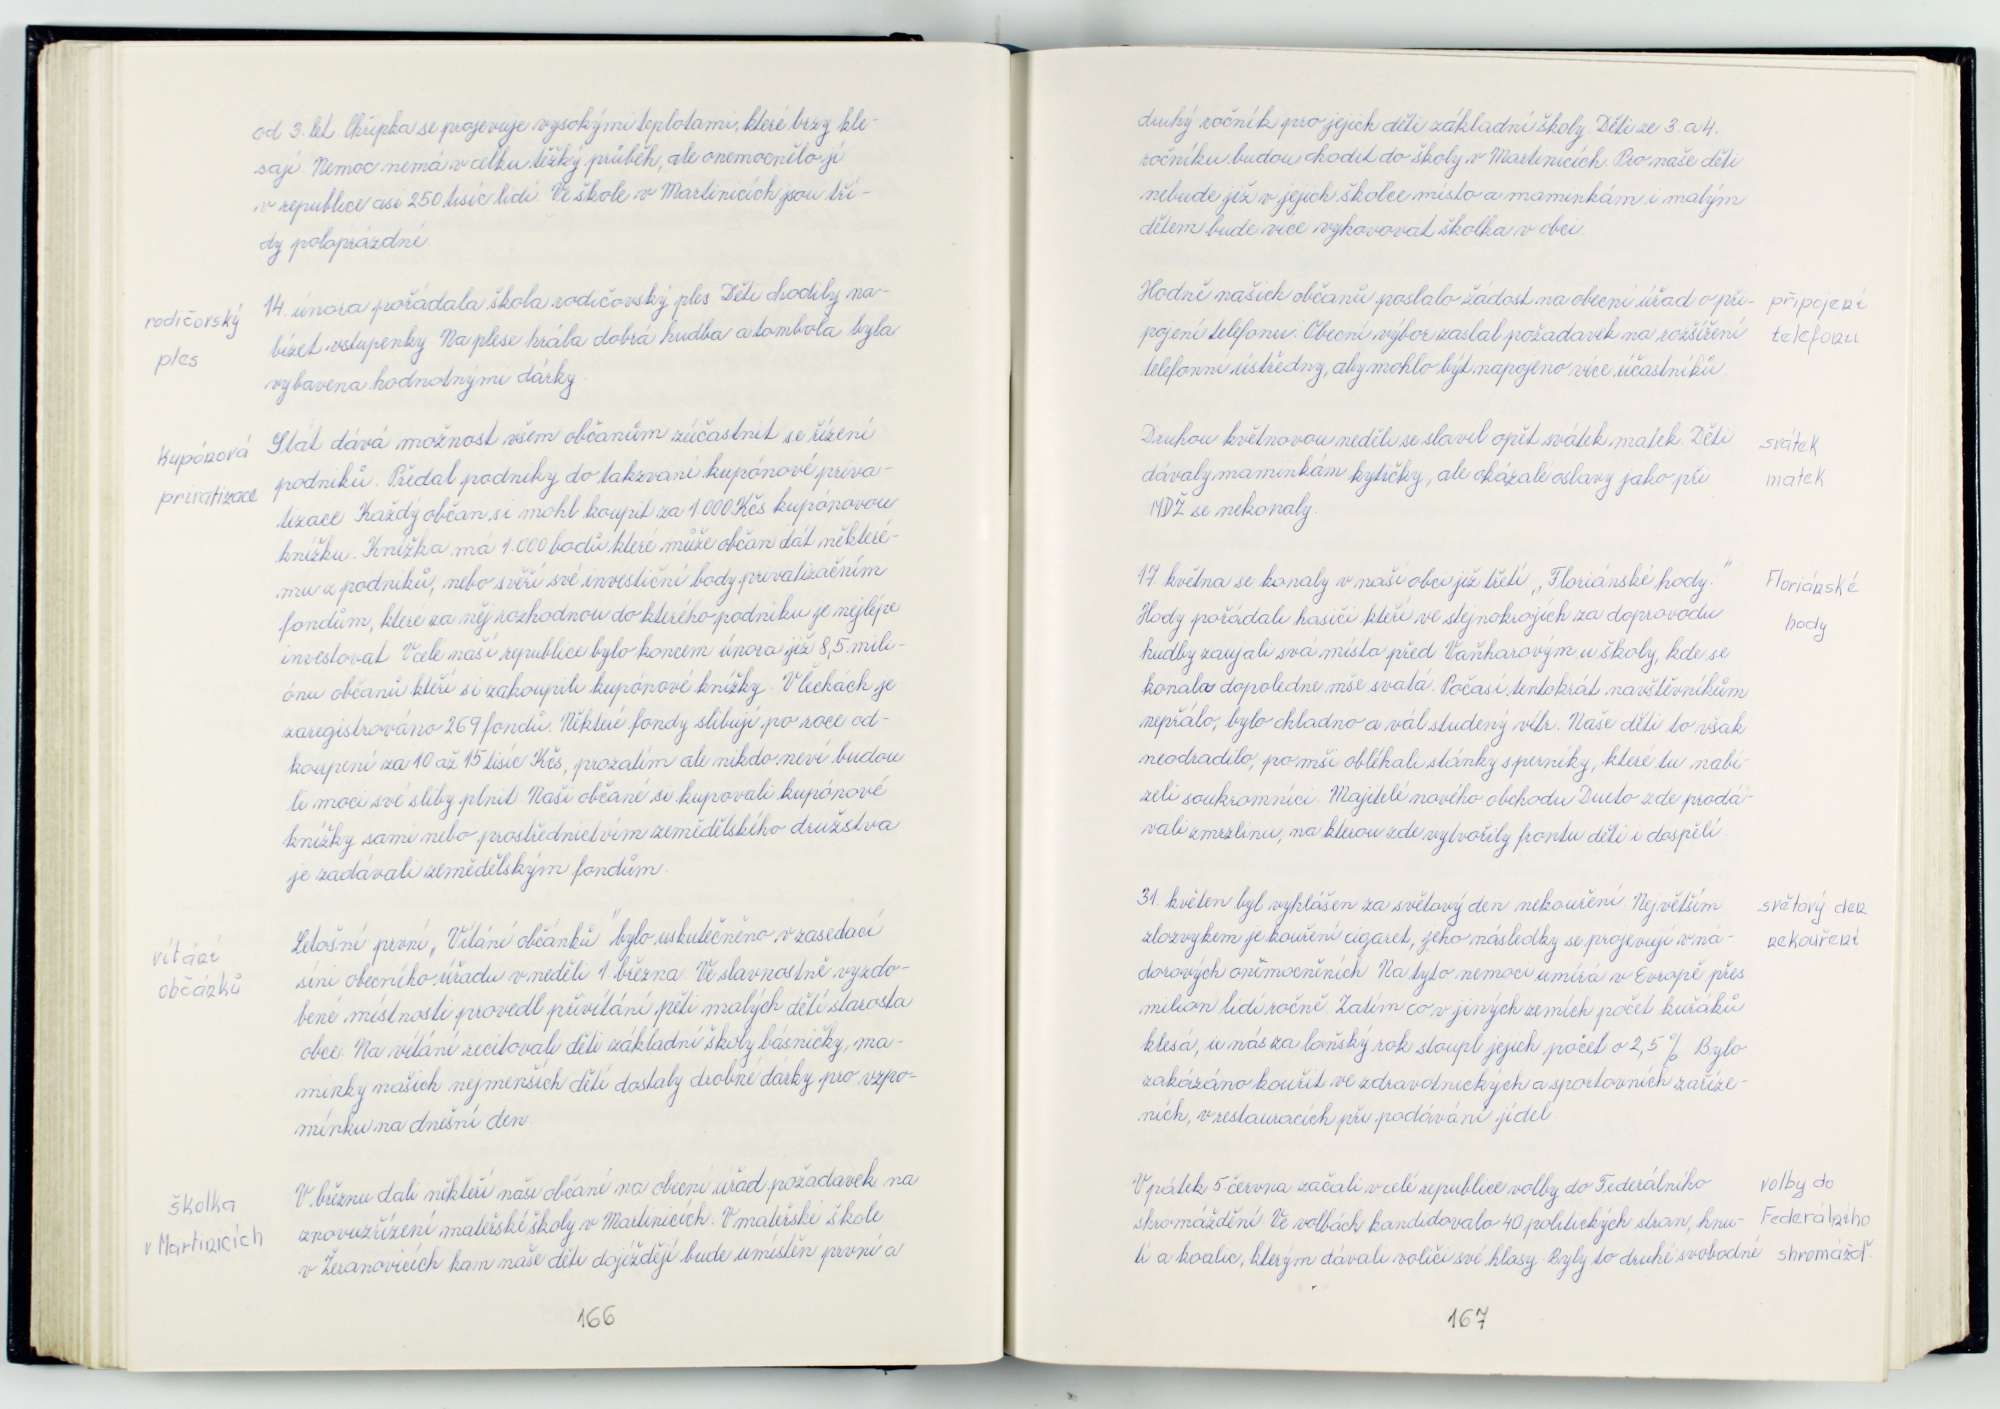 od 3. let. Chřipka se projevuje vysokými teplotami, které brzy kle-
sají. Nemoc nemá v celku těžký průběh, ale onemocnělo jí
v republice asi 250 tisíc lidí. Ve škole v Martinicích jsou tří-
dy poloprázdné.
rodičovský
ples
14. února pořádala škola rodičovský ples Děti chodily na-
bízet vstupenky Na plese hrála dobrá hudba a tombola byla
vybavena hodnotnými dárky.
kupónová
privatizace
Stát dává možnost všem občanům zúčastnit se řízení
podniků. Předal podniky do takzvané kupónové priva-
tizace Každý občan si mohl koupit za 1.000 Kčs kupónovou
knížku. Knížka má 1.000 bodů, které může občan dát některé-
mu z podniků, nebo svěří své investiční body privatizačním
fondům, které za něj rozhodnou do kterého podniku je nejlépe
investovat V celé naší republice bylo koncem února již 8,5 mili-
ónu občanů kteří si zakoupili kupónové knížky. V Čechách je
zaregistrováno 269 fondů. Některé fondy slibují po roce od-
koupení za 10 až 15 tisíc Kčs, prozatím ale nikdo neví budou
li moci své sliby plnit Naši občané si kupovali kupónové
knížky sami nebo prostřednictvím zemědělského družstva
je zadávali zemědělským fondům.
vítání
občánků
Letošní první „Vítání občánků" bylo uskutečněno v zasedací
síni obecního úřadu v neděli 1. března. Ve slavnostně vyzdo-
bené místnosti provedl přivítání pěti malých dětí starosta
obce. Na vítání recitovali děti základní školy básničky, ma-
minky našich nejmenších dětí dostaly drobné dárky pro vzpo-
mínku na dnešní den.
školka
v Martinicích
V březnu dali někteří naši občané na obecní úřad požadavek na
znovuzřízení mateřské školy v Martinicích. V mateřské škole
v Žeranovicích kam naše děti dojíždějí bude umístěn první a
166
druhý ročník pro jejich děti základní školy. Děti ze 3. a 4.
ročníku budou chodit do školy v Martinicích. Pro naše děti
nebude již v jejich školce místo a maminkám i malým
dětem bude více vyhovovat školka v obci.
Hodně našich občanů poslalo žádost na obecní úřad o při-
pojení telefonu. Obecní výbor zaslal požadavek na rozšíření
telefonní ústředny, aby mohlo být napojeno více účastníků.
připojení
telefonu
Druhou květnovou neděli se slavil opět svátek matek. Děti
dávaly maminkám kytičky, ale okázalé oslavy jako při
MDŽ se nekonaly.
svátek
matek
17 května se konaly v naší obci již třetí „Floriánské hody."
Hody pořádali hasiči kteří ve stejnokrojích za doprovodu
hudby zaujali svá místa před Vaňharovým u školy, kde se
konala dopoledne mše svatá. Počasí tentokrát navštěvníkům
nepřálo, bylo chladno a vál studený vítr. Naše děti to však
neodradilo, po mši obléhali stánky s perníky, které tu nabí-
zeli soukromníci. Majitelé nového obchodu Dueto zde prodá-
vali zmrzlinu, na kterou zde vytvořily frontu děti i dospělí.
Floriánské
hody
31. květen byl vyhlášen za světový den nekouření. Největším
zlozvykem je kouření cigaret, jeho následky se projevují v ná-
dorových oněmocněních Na tyto nemoci umírá v Evropě přes
milion lidí ročně Zatím co v jiných zemích počet kuřáků
klesá, u nás za loňský rok stoupl jejich počet o 2,5 %. Bylo
zakázáno kouřit ve zdravotnických a sportovních zaříze-
ních, v restauracích při podávání jídel.
světový den
nekouření
V pátek 5. června začali v celé republice volby do Federálního
shromáždění. Ve volbách kandidovalo 40 politických stran, hnu-
tí a koalic, kterým dávali voliči své hlasy. Byly to druhé svobodné
volby do
Federálního
shromážď.
167